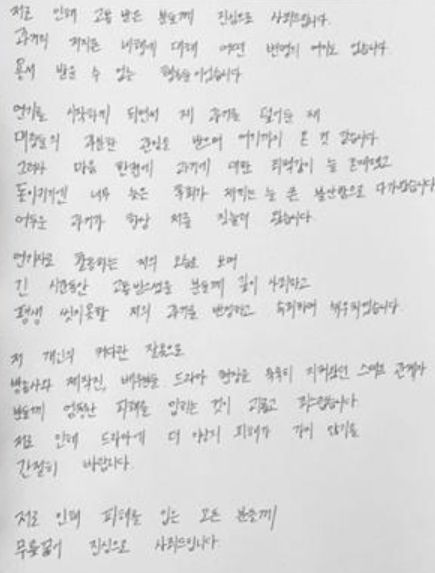 저로 인해 고통 받은 분들께 진심으로 사죄드립니다.
과거에 저지른 비행에 대해 어떤 변명의 여지도 없습니다
용서 받을 수 없는 행동들이었습니다
연기를 시작하게 되면서 제 과거를 덮어둔 채
대중들의 과분한 관심을 받으며 여기까지 온 것 같습니다
그러나 마음 한편에 과거에 대한 죄책감이 늘 존재했고
돌이키기엔 너무 늦은 후회가 저에게는 늘 큰 불안함으로 다가왔습니다
어두운 과거가 항상 저를 짓눌러 왔습니다
연기자로 활동하는 저의 모습을 보며
긴 시간동안 고통받으셨을 분들께 깊이 사죄하고
평생 씻지못할 저의 과거를 반성하고 속죄하며
저 개인의 커다란 잘못으로
방송사와 제작진, 배우분들 드라마 현장을 묵묵히 지켜왔던 스태프 관계자
분들께 엄청난 피해를 입히는 것이 괴롭고 죄스럽습니다
저로 인해 드라마에 더 이상의 피해가 가지 않기를
간절히 바랍니다
저로 인해 피해를 입은 모든 분들께
무릎꿇어 진심으로 사죄드립니다